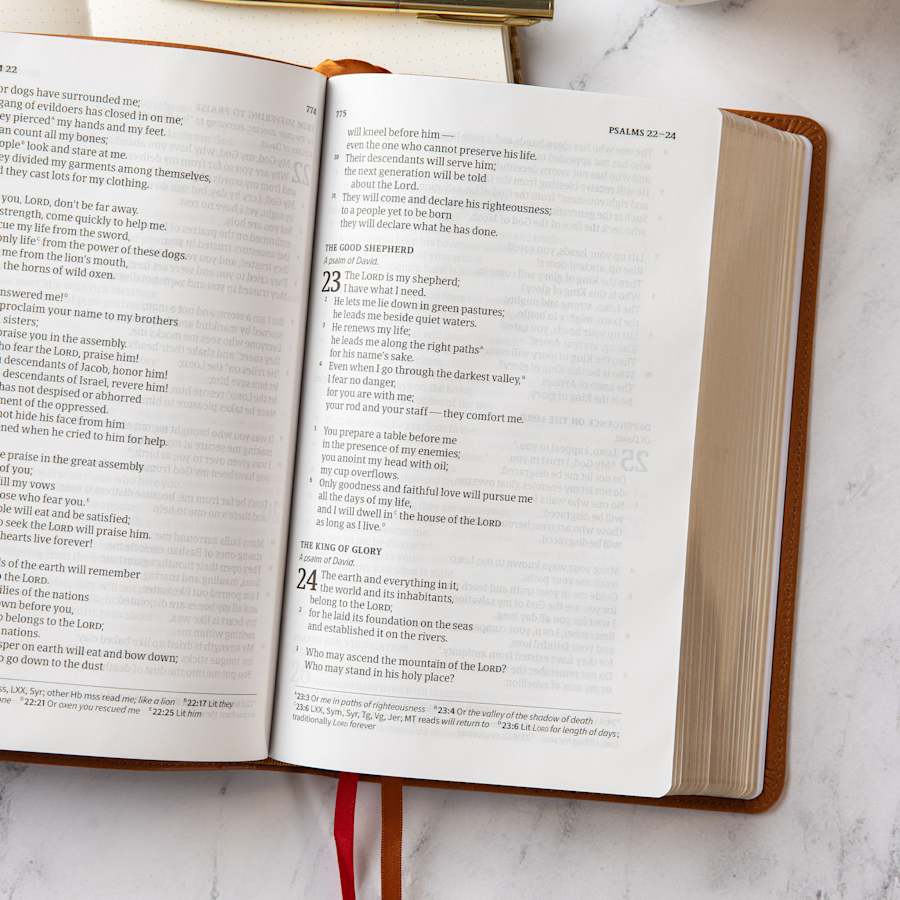 22
or dogs have surrounded me;
gang of evildoers has closed in on me;
ey pierced my hands and my feet.
an count all my bones;
ople look and stare at me.
ey divided my garments among themselves,
d they cast lots for my clothing.
you, LORD, don't be far away.
strength, come quickly to help me.
cue my life from the sword,
only life from the power of these dogs.
me from the lion's mouth,
the horns of wild oxen.
nswered me!
proclaim your name to my brothers
sisters;
praise you in the assembly.
ho fear the LORD, praise him!
descendants of Jacob, honor him!
descendants of Israel, revere him!
has not despised or abhorred
ment of the oppressed.
not hide his face from him
ned when he cried to him for help.
e praise in the great assembly
of you;
ill my vows
ose who fear you.
ple will eat and be satisfied;
o seek the LORD will praise him.
hearts live forever!
s of the earth will remember
o the LORD.
ilies of the nations
wn before you,
p belongs to the LORD;
nations.
sper on earth will eat and bow down;
o go down to the dust
ss, LXX, Syr; other Hb mss read me; like a lion 22:17 Lit they
one 22:21 Or oxen you rescued me 22:25 Lit him
774
775
PSALMS 22–24
will kneel before him —
even the one who cannot preserve his life.
30 Their descendants will serve him;
the next generation will be told
about the Lord.
31 They will come and declare his righteousness;
to a people yet to be born
they will declare what he has done.
THE GOOD SHEPHERD
A psalm of David.
23 The LORD is my shepherd;
I have what I need.
2 He lets me lie down in green pastures;
he leads me beside quiet waters.
3 He renews my life;
he leads me along the right paths
for his name's sake.
4 Even when I go through the darkest valley,
I fear no danger,
for you are with me;
your rod and your staff — they comfort me.
5 You prepare a table before me
in the presence of my enemies;
you anoint my head with oil;
my cup overflows.
6 Only goodness and faithful love will pursue me
all the days of my life,
and I will dwell in the house of the LORD
as long as I live.
THE KING OF GLORY
A psalm of David.
24 The earth and everything in it,
the world and its inhabitants,
belong to the LORD;
2 for he laid its foundation on the seas
and established it on the rivers.
3 Who may ascend the mountain of the LORD?
Who may stand in his holy place?
23:3 Or me in paths of righteousness 23:4 Or the valley of the shadow of death
23:6 LXX, Sym, Syr, Tg, Vg, Jer; MT reads will return to 23:6 Lit LORD for length of days;
traditionally LORD forever